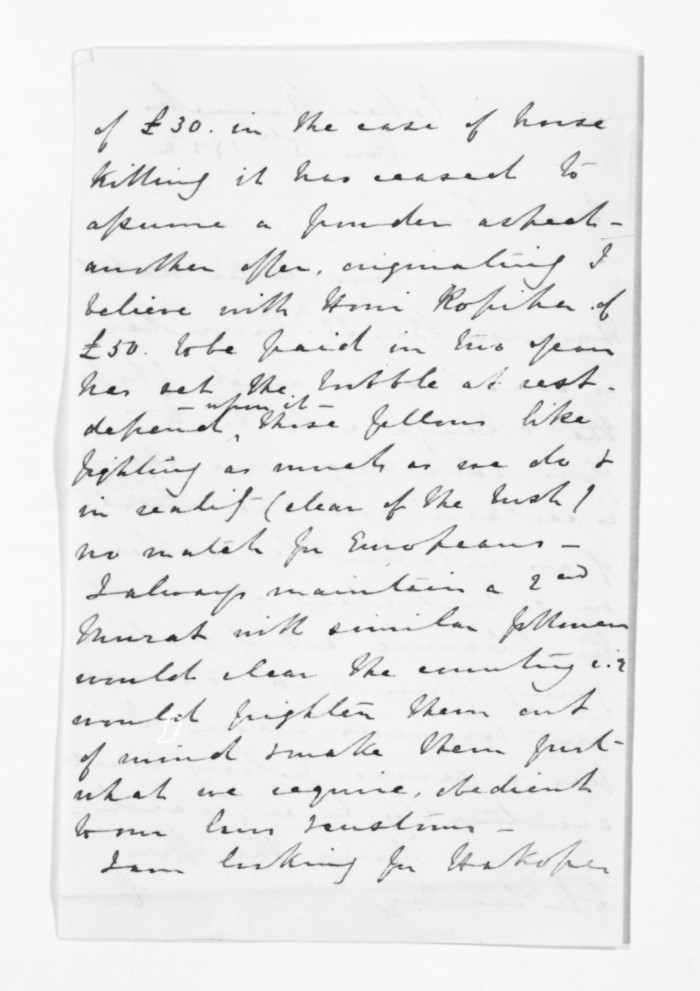 of £30. in the case of horse
killing it has ceased to
assume a powder aspect -
another offer, originating I
believe with Honi Ropiha of
£50. to be paid in two years
has set the bubble at rest -
depend upon it - these fellows like
fighting as much as we do &
in reality (clear of the bush)
no match for Europeans -
I always maintain a 2nd
Murat with similar followers
would clear the country i.e
would frighten them out
of mind & make them just
what we require, obedient
to our laws & customs -
I am looking for Hakopa